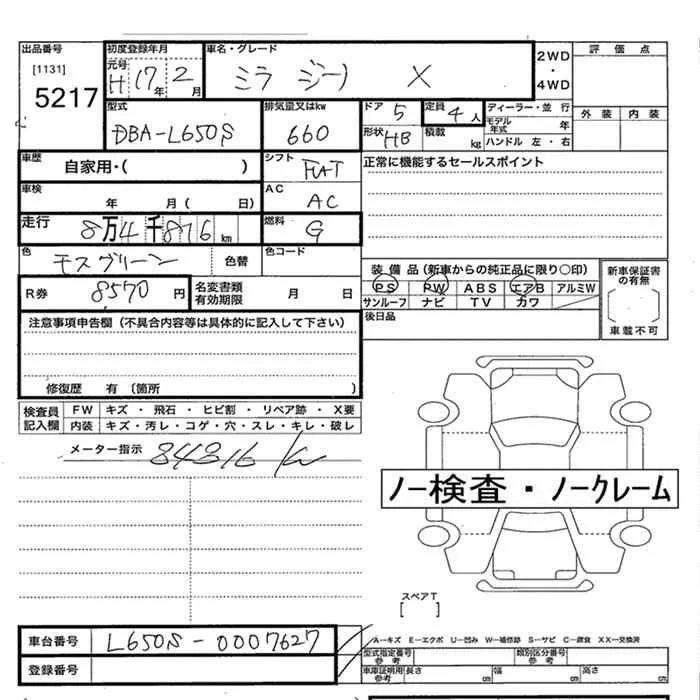 出品番号 初度登録年月 車名・グレード 2WD・4WD 評価点
[1131] 元号 H 17年 2月 ミラ ジーノ X
5217
型式 排気量又はkw ドア 5 定員 4人 ディーラー・並行 外装 内装
DBA-L650S 660 形状 HB 積載 kg モデル年式 年
ハンドル 左・右
車歴 自家用・( ) シフト FAT 正常に機能するセールスポイント
車検 年 月( 日) AC AC
走行 8万4千816km 燃料 G
色 モスグリーン 色替 色コード
装備品(新車からの純正品に限り○印) 新車保証書の有無
R券 8570円 名変書類有効期限 月 日 PS PW ABS エアB アルミW
サンルーフ ナビ TV カワ 車載不可
注意事項申告欄(不具合内容等は具体的に記入して下さい) 後日品
修復歴 有 〔箇所 )
検査員記入欄 FW キズ・飛石・ヒビ割・リペア跡・X要
内装 キズ・汚レ・コゲ・穴・スレ・キレ・破レ
メーター指示 84816 km
ノー検査・ノークレーム
スペアT
[ ]
車台番号 L650S-0007627 A−キズ E−エクボ U−凹み W−補修跡 S−サビ C−腐食 XX−交換済
型式指定番号 参考 類別区分番号 参考
登録番号 車庫証明用 参考 長さ cm 幅 cm 高さ cm